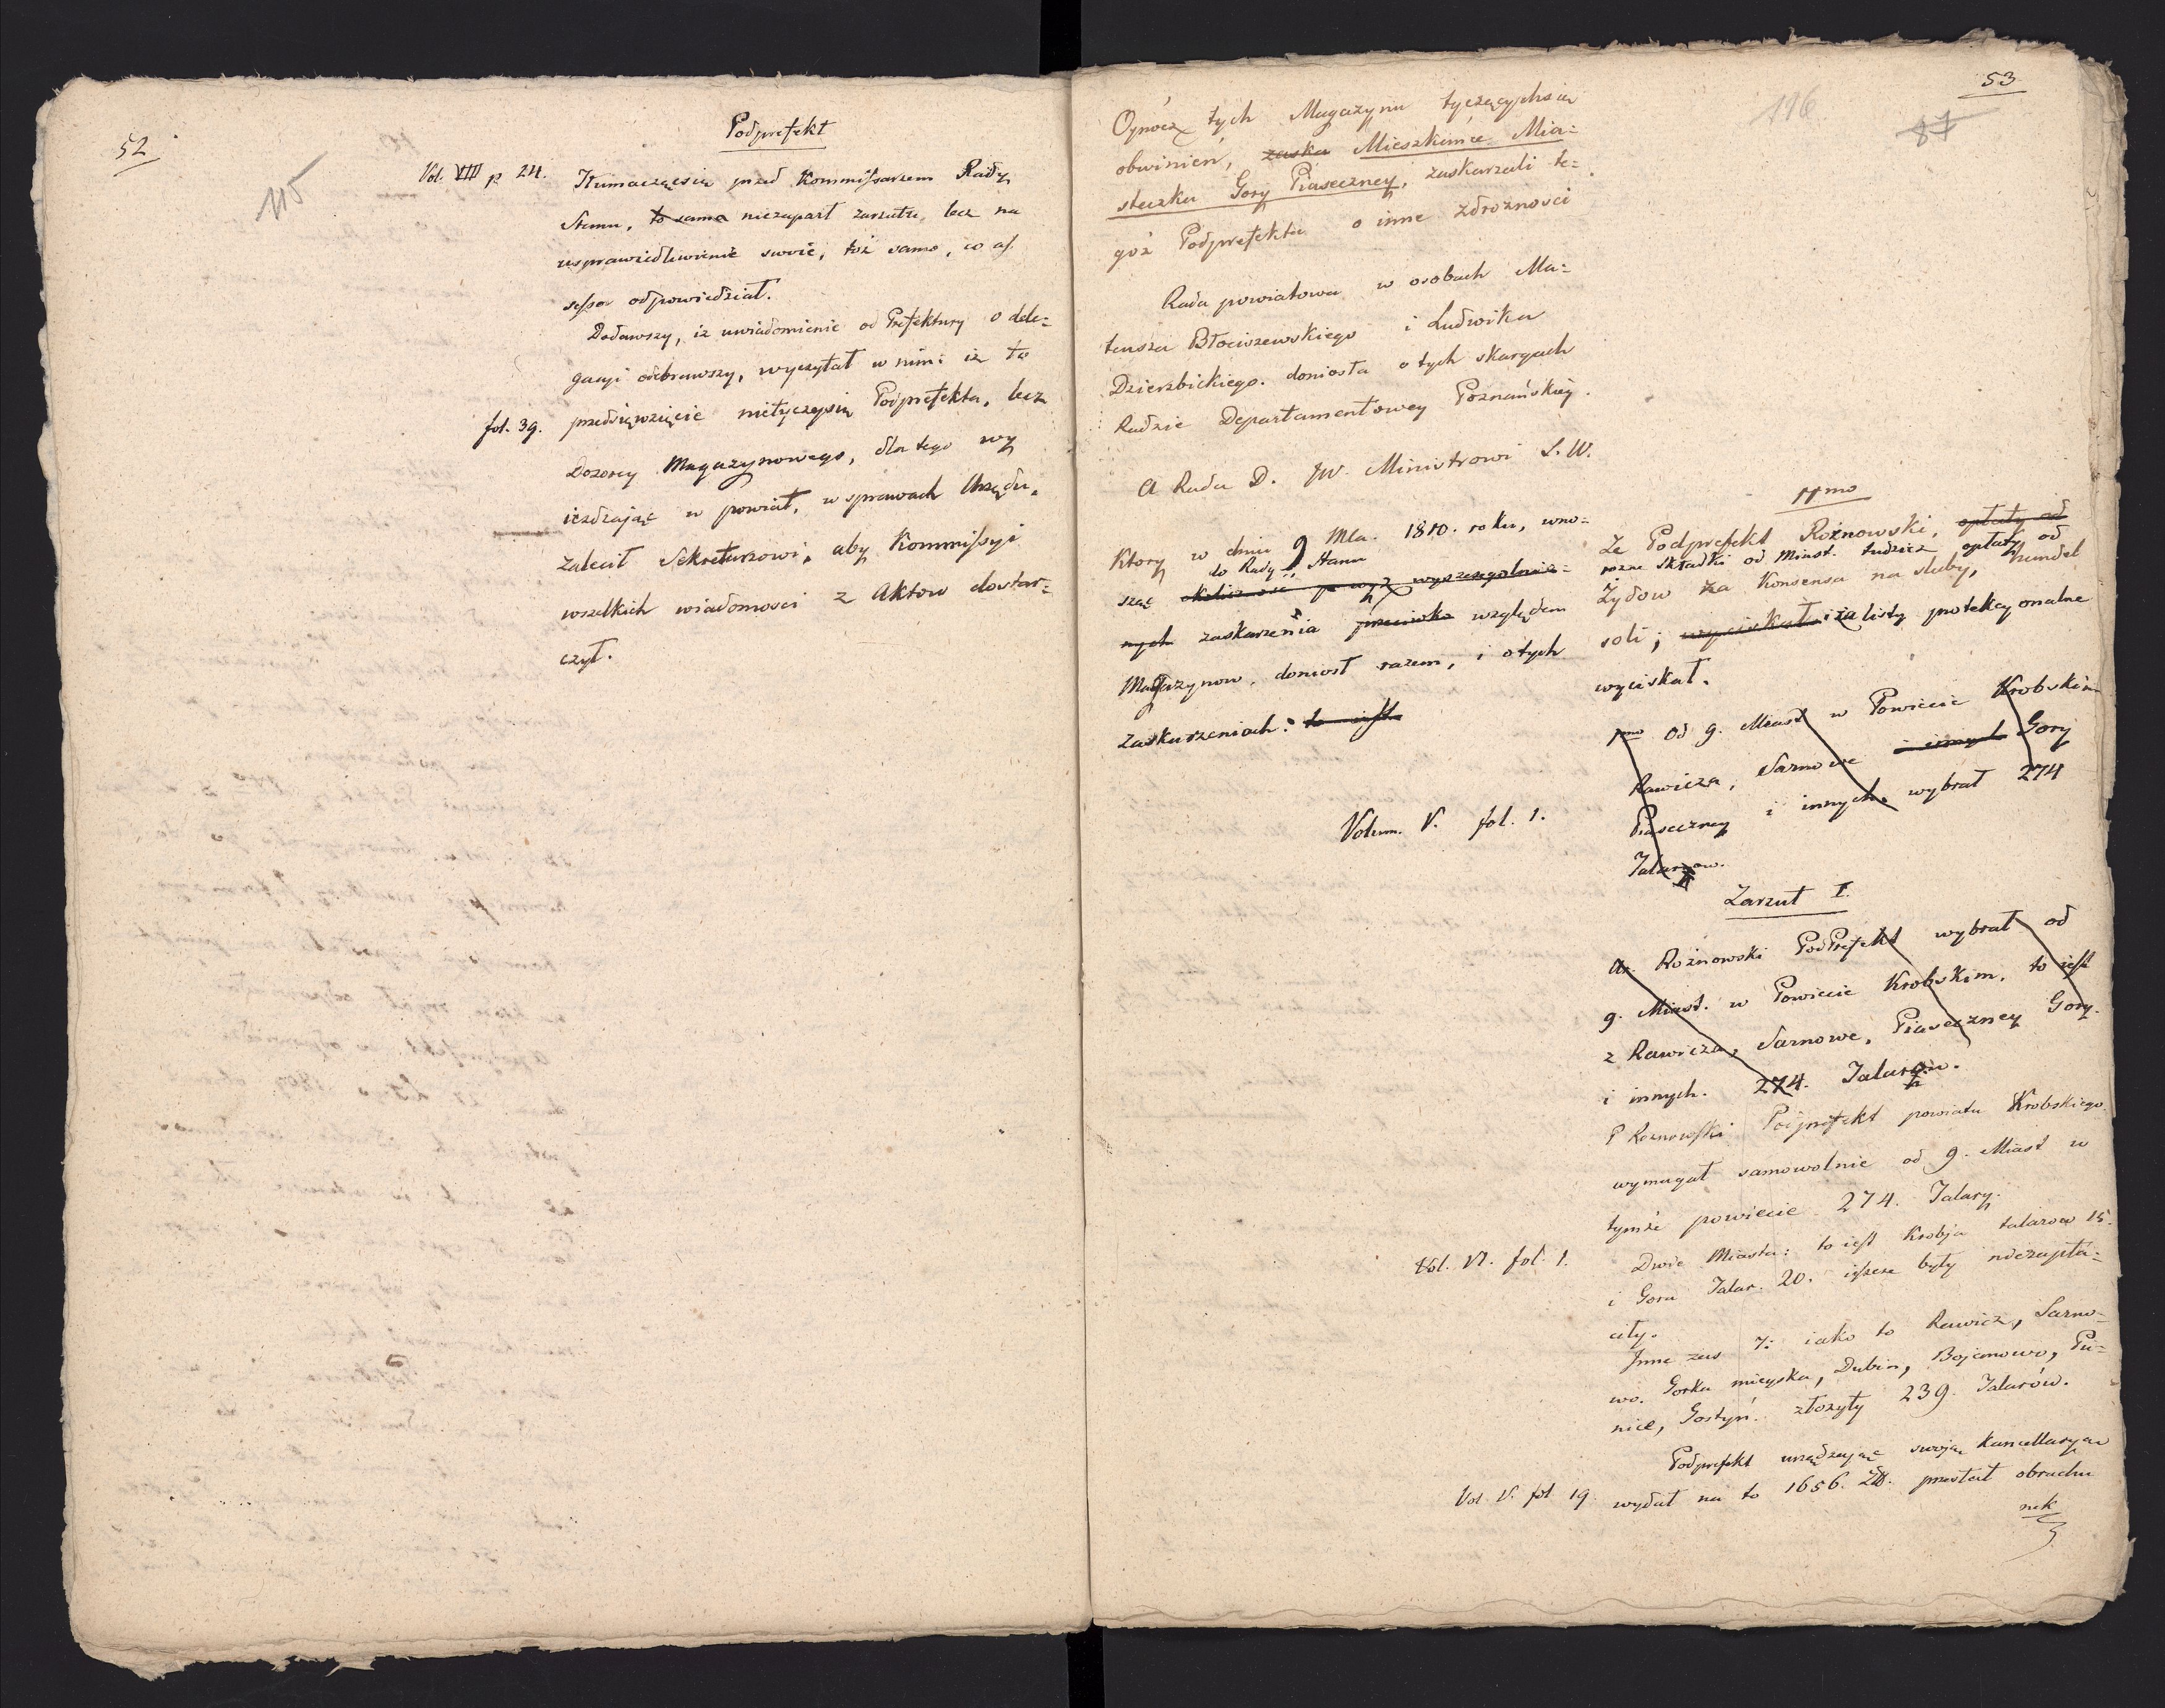 52
115
Podprefekt
Vol. VIII p 24.
Tłumaczącsię przed Kommissarzem Rady
Stanu, to samo niezaparł zarzutu, lecz na
usprawiedliwienie swoie, toż samo, co as
sessor odpowiedział.
Dodawszy, iż uwiadomienie od Prefektury o dele=
gacyi odebrawszy, wyczytał w nim: iż to
fol. 39.
przedsięwzięcie nietyczesię Podprefekta, lecz
Dozorcy Magazynowego, dla tego wy
ieżdżając w powiat, w sprawach Urzędu,
zalecił Sekretarzowi, aby Kommissyi
wszelkich wiadomości z Aktow dostar=
czył.
53
116
87
Oprócz tych Magazynu tyczącychsię
obwinień, zaska Mieszkańce Mia=
steczka Gory Piaseczney, zaskarzali te=
goż Podprefekta o inne zdrożności
Rada powiatowa w osobach Ma=
teusza Błociszewskiego i Ludwika
Dzierzbickiego. doniosła o tych skargach
Radzie Departamentowey Poznańskiéy.
A Rada D. JW. Ministrowi S. W.
Ktory w dniu 9 Mla. 1810. roku, wno=
do Rady Stanu
sząc
nych zaskarzenia przeciwko względem
Magazynow, doniosł razem, i o tych
zaskarzeniach: to iest
Volum. V. fol. 1.
IImo
Ze Podprefekt Rożnowski, opłaty od
rozne składki od Miast. tudzież opłaty od
Żydow za Konsensa na sluby, handel
soli; wyciskał i za listy protekcyonalne
wyciskał.
1mo od 9. Miast w Powiecie Krobskim
Rawicza, Sarnowe i innych Gory
Piaseczney i innych, wybrał 274
Talarow.
Zarzut I.
Rożnowski PodPrefekt wybrał od
9. Miast. w Powiecie Krobskim, to iest
z Rawicza, Sarnowe, Piaseczney Gory.
i innych. 274. Talarow.
P Roznowski Podprefekt powiatu Krobskiego
wymagał samowolnie od 9. Miast w
tymże powiecie 274. Talary.
Vol. VI. fol. 1.
Dwie Miasta: to iest Krobja talarow 15.
i Gora Talar. 20. ieszcze były niezapła=
ciły.
Inne zas 7: iako to Rawicz, Sarno=
wo. Gorka mieyska, Dubin, Bojanowo, Pu=
nice, Gostyń. złozyły 239. Talarów.
Podprefekt urządzając swoją Kancellaryą
Vol. V. fol 19.
wydał na to 1656. Złł. przesłał obrachu
nek